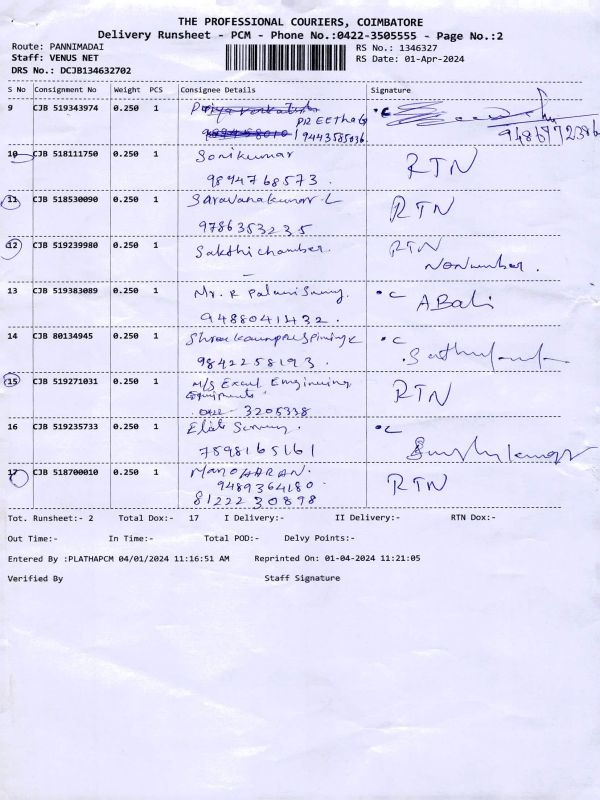 THE PROFESSIONAL COURIERS, COIMBATORE
Delivery Runsheet - PCM - Phone No.:0422-3505555 - Page No.:2
Route: PANNIMADAI
RS No.: 1346327
Staff: VENUS NET
RS Date: 01-Apr-2024
DRS No.: DCJB134632702
S No Consignment No Weight PCS Consignee Details Signature
9 CJB 519343974 0.250 1
PREEthaG
9443585036
9486772386
10 CJB 518111750 0.250 1 Sonikumar RTN
9894768573.
11 CJB 518530090 0.250 1 Saravanakumar L RTN
9786353235
12 CJB 519239980 0.250 1 Sakthi chamber. RTN
NoNumber.
13 CJB 519383089 0.250 1 Mr. R Palani Samy. C ABali
9488041432.
14 CJB 80134945 0.250 1 C
9842258193.
15 CJB 519271031 0.250 1 M/s Excel Engineering RTN
Equipments
3205338
16 CJB 519235733 0.250 1 C
7598165161
17 CJB 518700010 0.250 1 MANOHARAN. RTN
9489364180
8122230898
Tot. Runsheet:- 2 Total Dox:- 17 I Delivery:- II Delivery:- RTN Dox:-
Out Time:- In Time:- Total POD:- Delvy Points:-
Entered By :PLATHAPCM 04/01/2024 11:16:51 AM Reprinted On: 01-04-2024 11:21:05
Verified By Staff Signature